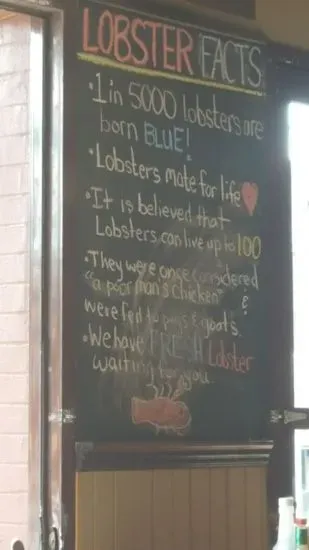 LOBSTER FACTS
• 1 in 5000 lobsters are
born BLUE!
• Lobsters mate for life
• It is believed that
Lobsters can live up to 100
• They were once considered
"a poor man's chicken" &
were fed to pigs & goats.
• We have FRESH Lobster
waiting for you.